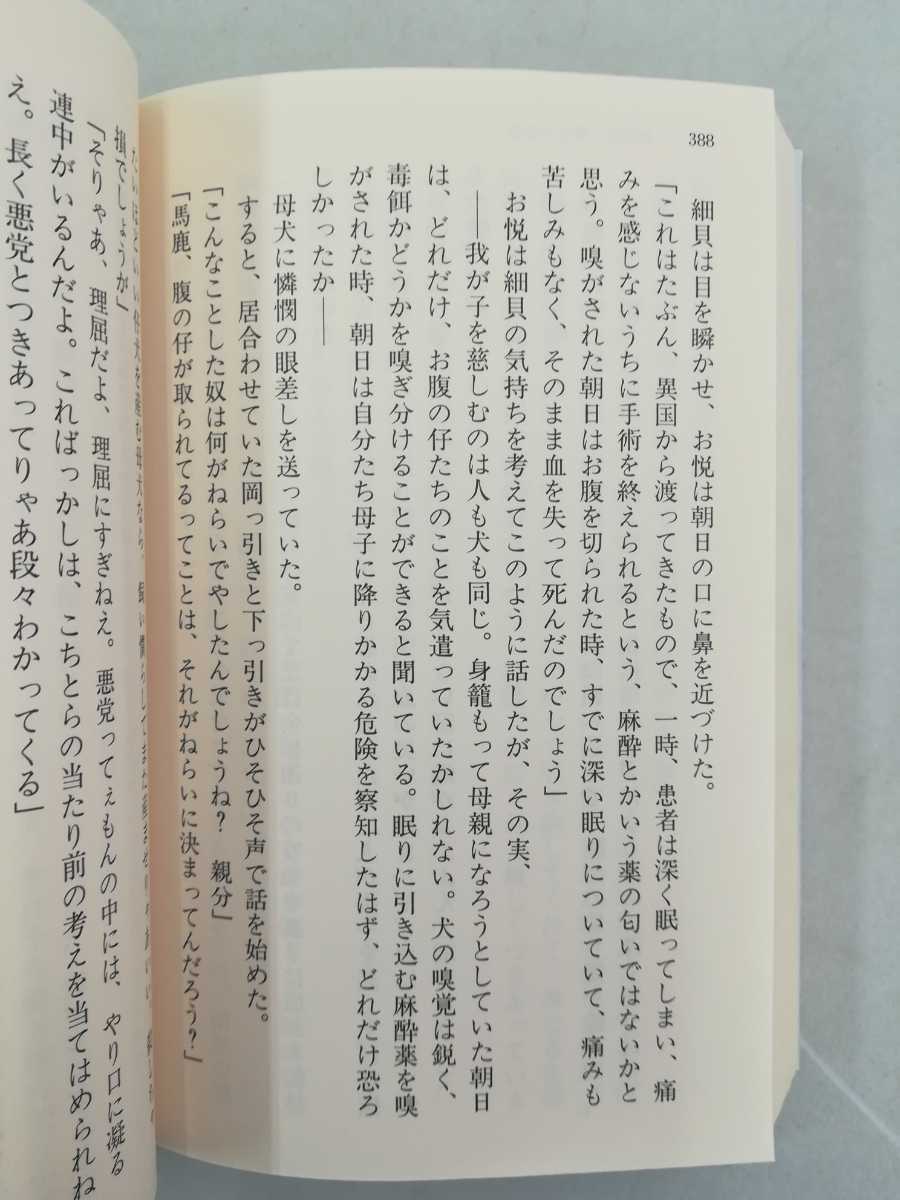 388
細貝は目を瞬かせ、お悦は朝日の口に鼻を近づけた。
「これはたぶん、異国から渡ってきたもので、一時、患者は深く眠ってしまい、痛
みを感じないうちに手術を終えられるという、麻酔とかいう薬の匂いではないかと
思う。嗅がされた朝日はお腹を切られた時、すでに深い眠りについていて、痛みも
苦しみもなく、そのまま血を失って死んだのでしょう」
お悦は細貝の気持ちを考えてこのように話したが、その実、
――我が子を慈しむのは人も犬も同じ。身籠もって母親になろうとしていた朝日
は、どれだけ、お腹の仔たちのことを気遣っていたかしれない。犬の嗅覚は鋭く、
毒餌かどうかを嗅ぎ分けることができると聞いている。眠りに引き込む麻酔薬を嗅
がされた時、朝日は自分たち母子に降りかかる危険を察知したはず、どれだけ恐ろ
しかったか――
母犬に憐憫の眼差しを送っていた。
すると、居合わせていた岡っ引きと下っ引きがひそひそ声で話を始めた。
「こんなことした奴は何がねらいでやしたんでしょうね？　親分」
「馬鹿、腹の仔が取られてるってことは、それがねらいに決まってんだろう？」
でしょうが」
「そりゃあ、理屈だよ、理屈にすぎねえ。悪党ってぇもんの中には、やり口に凝る
連中がいるんだよ。こればっかしは、こちとらの当たり前の考えを当てはめられね
え。長く悪党とつきあってりゃあ段々わかってくる」